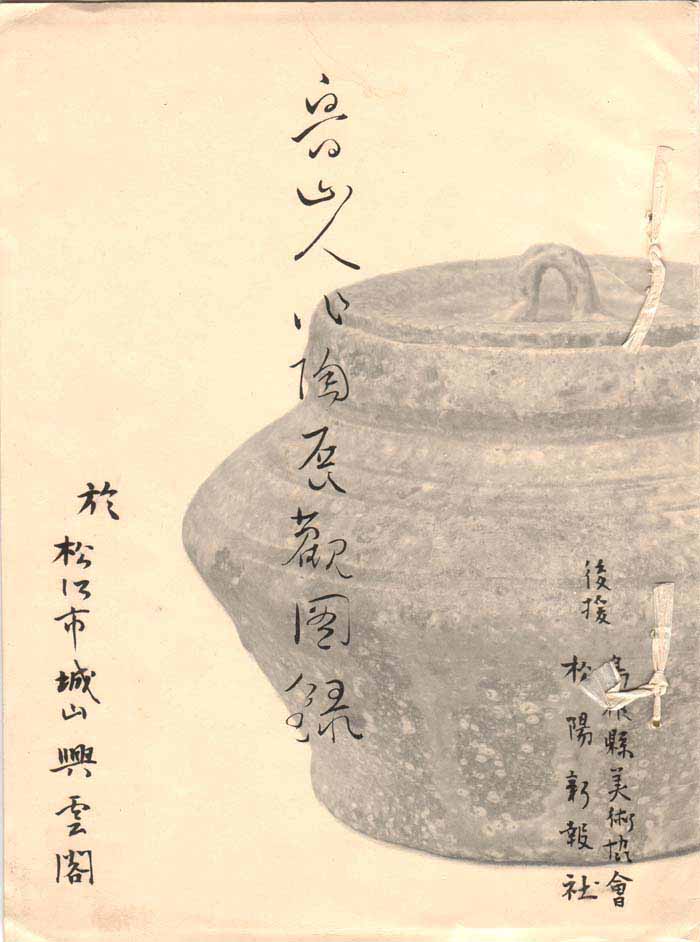 魯山人作陶展観図録
後援
島根縣美術協會
松陽新報社
於
松江市城山興雲閣